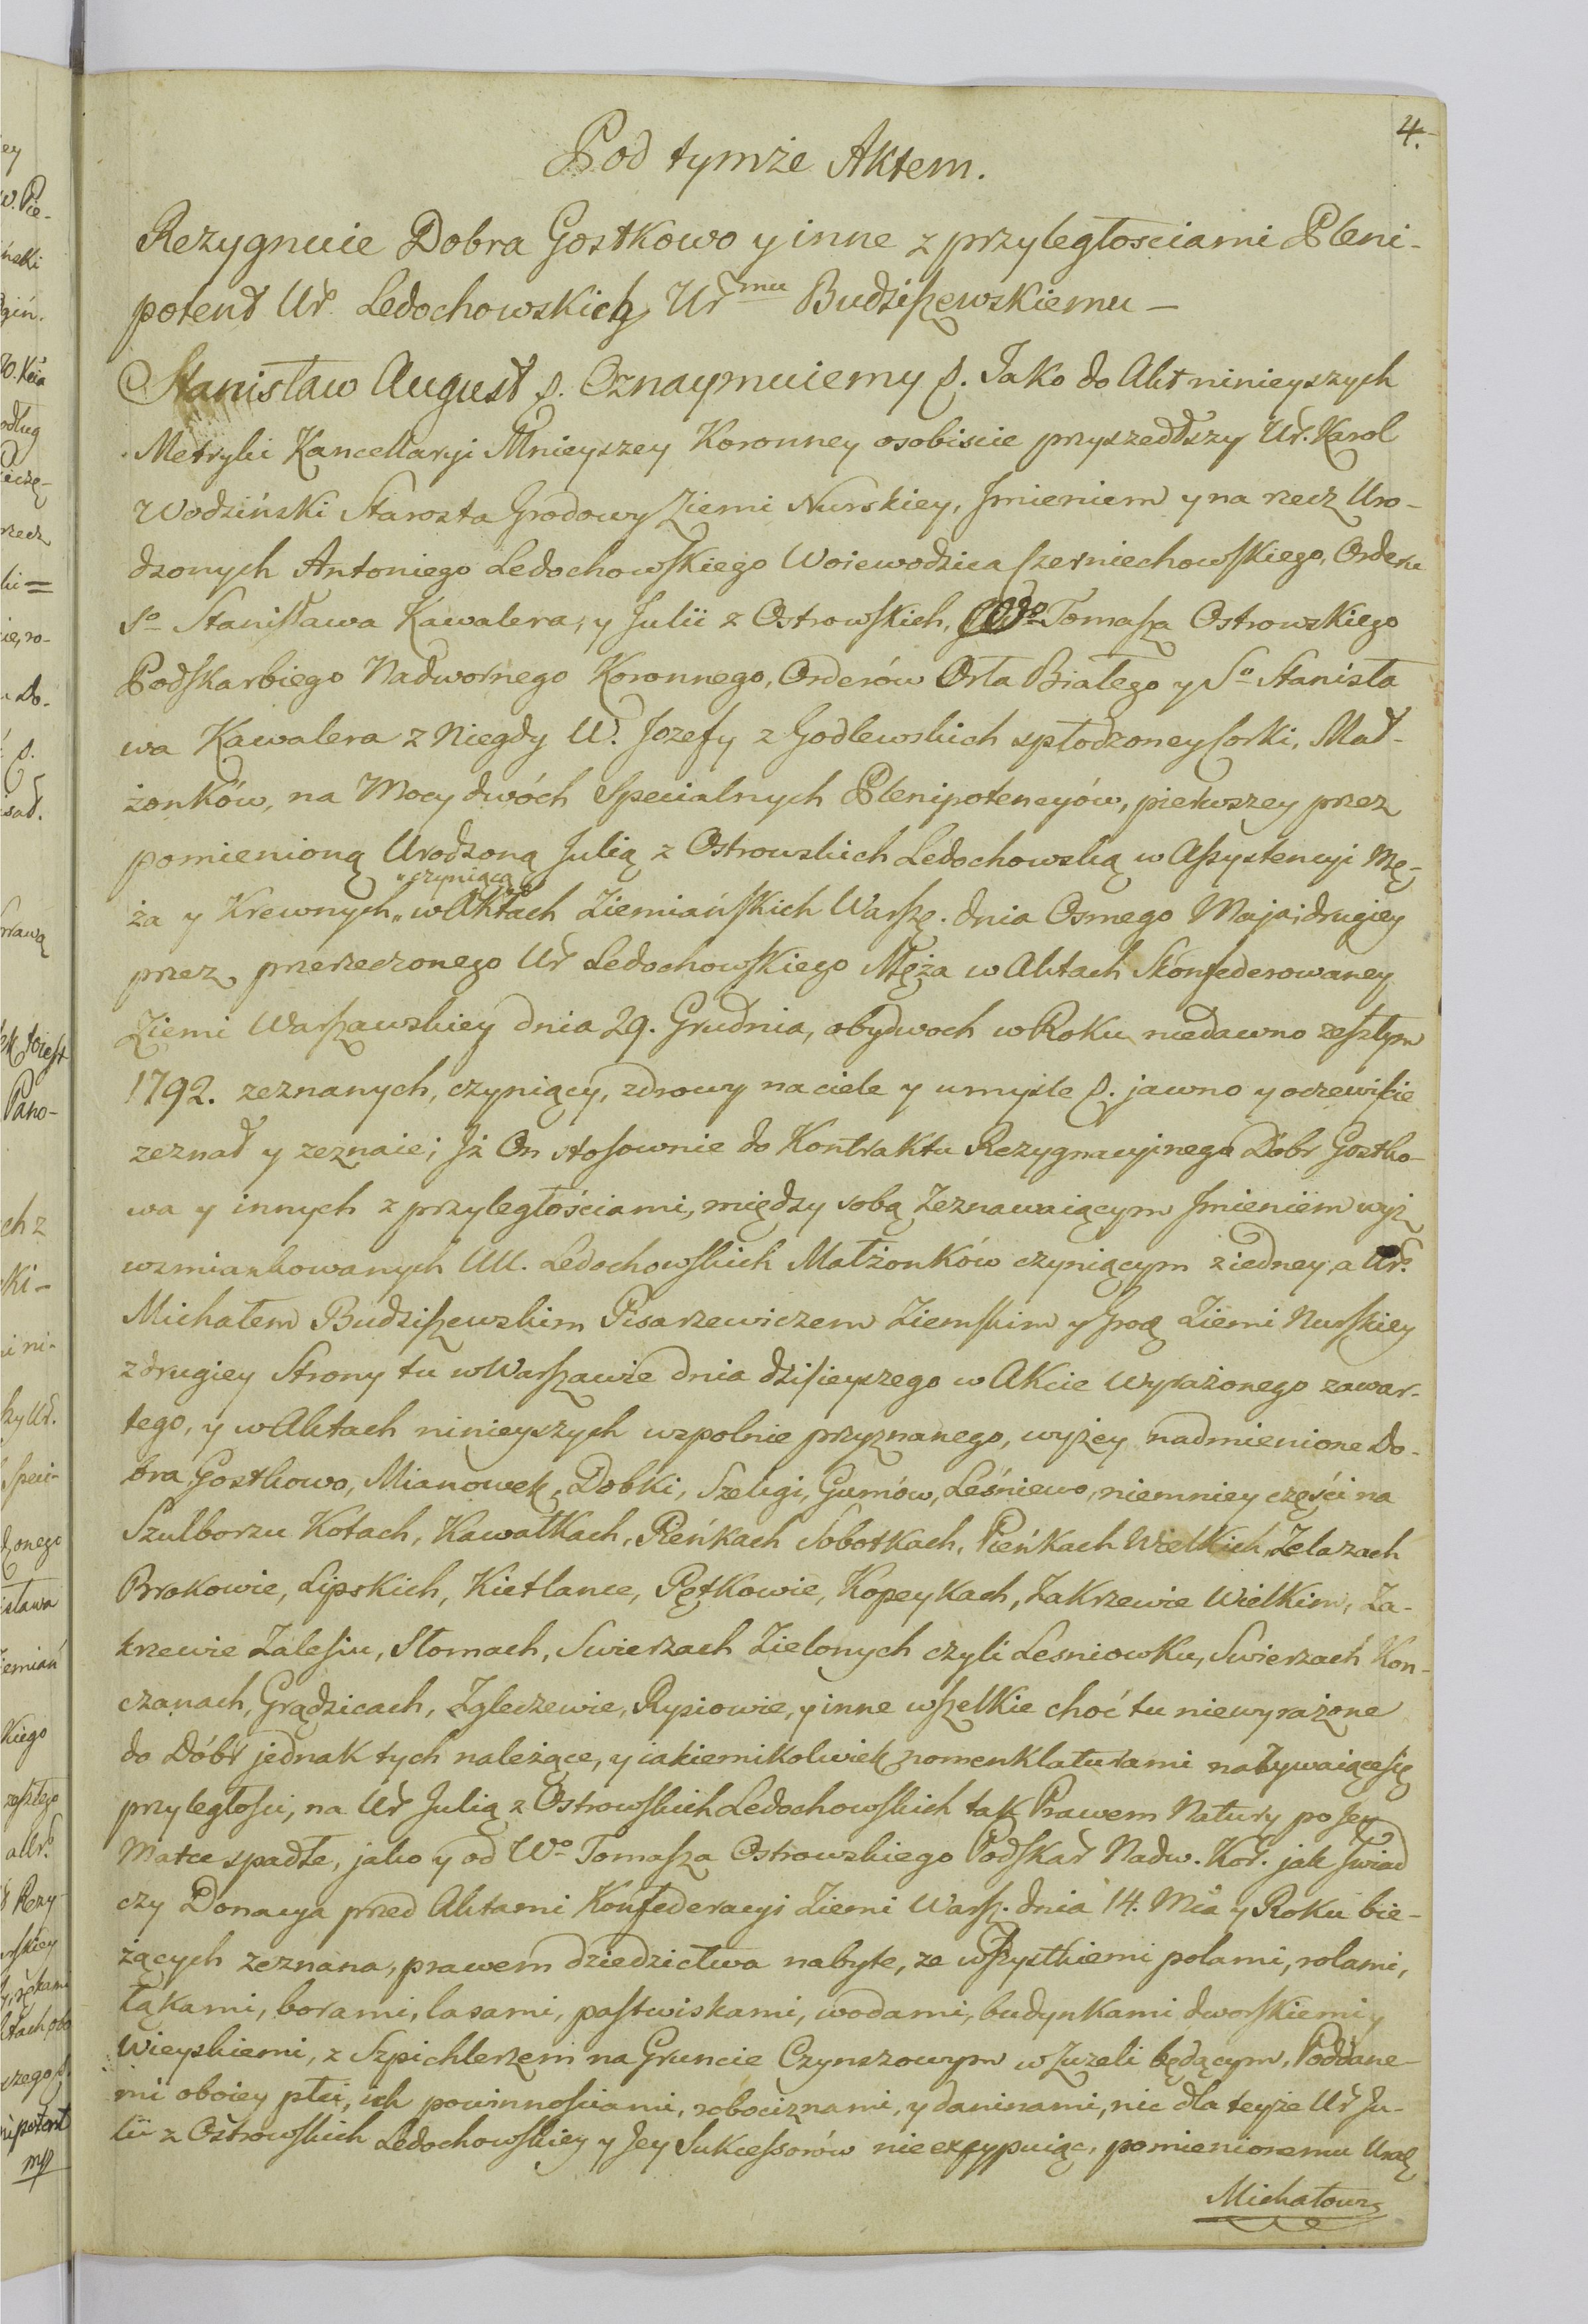 4.
Pod tymże Aktem.
Rezygnuie Dobra Gostkowo y inne z przyległosciami Pleni-
potent Ur. Ledochowskich Urmu Budziszewskiemu —
Stanisław August p. Oznaymuiemy p. Jako do Akt ninieyszych
Metryki Kancellaryi Mnieyszey Koronney osobiscie przyszedłszy Ur. Karol
Wodziński Starosta Grodowy Ziemi Nurskiey, Jmieniem y na rzecz Uro-
dzonych Antoniego Ledochowskiego Woiewodzica Czerniechowskiego, Orderu
So Stanisława Kawalera, y Julii z Ostrowskich, Wo Tomasza Ostrowskiego
Podskarbiego Nadwornego Koronnego, Orderów Orła Białego y So Stanisła
wa Kawalera z Niegdy W. Jozefy z Godlewskich spłodzoney Corki, Mał-
żonków, na Mocy dwóch Specialnych Plenipotencyów, pierwszey przez
pomienioną Urodzoną Julią z Ostrowskich Ledochowską w Assystencyi Mę-
ża y Krewnych „czyniącą" w Aktach Ziemiańskich Warsz. dnia Osmego Maja; drugiey
przez przerzeczonego Ur Ledochowskiego Męża w Aktach Skonfederowaney
Ziemi Warszawskiey dnia 29. Grudnia, obydwoch w Roku niedawno zeszłym
1792. zeznanych, czyniący, zdrowy na ciele y umysle p. jawno y oczewiscie
zeznał y zeznaie; Jż On stosownie do Kontraktu Rezygnacyinego Dobr Gostko-
wa y innych z przyległościami, między sobą Zeznawaiącym Jmieniem wyż
wzmiankowanych UU. Ledochowskich Małżonków czyniącym z iedney, a Ur.
Michałem Budziszewskim Pisarzewiczem Ziemskim y Grod Ziemi Nurskiey
z drugiey Strony tu w Warszawie dnia dzisieyszego w Akcie wyrażonego zawar-
tego, y w Aktach ninieyszych wspolnie przyznanego, wyżey nadmienione Do-
bra Gostkowo, Mianowek, Dobki, Szeligi, Gumów, Leśniewo, niemniey części na
Szulborzu Kotach, Kawałkach, Pieńkach Sobotkach, Pieńkach Wielkich, Zelazach
Brokowie, Lipskich, Kietlance, Pętkowie, Kopeykach, Zakrzewie Wielkim, Za-
krzewie Zalesiu, Słomach, Swierzach Zielonych czyli Lesniowku, Swierzach Kon-
czanach, Grądzicach, Zgleczewie, Rysiowie, y inne wszelkie choć tu niewyrażone
do Dóbr jednak tych należące, y iakiemikolwiek nomenklaturami nazywaiące się
przyległosci, na Ur Julią z Ostrowskich Ledochowskich tak Prawem Natury po Jey
Matce spadłe, jako y od Wo Tomasza Ostrowskiego Podskar Nadw. Kor. jak swiad
czy Donacya przed Aktami Konfederacyi Ziemi Warsz. dnia 14. Mca y Roku bie-
żących zeznana, prawem dziedzictwa nabyte, ze wszystkiemi polami, rolami,
łąkami, borami, lasami, pastwiskami, wodami, budynkami dworskiemi y
wieyskiemi, z Szpichlerzem na Gruncie Czynszowym w Zuzeli będącym, Poddane-
mi oboiey płci, ich powinnosciami, robociznami, y daninami, nic dla teyże Ur Ju-
lii z Ostrowskich Ledochowskiey y Jey Sukcessorów nie excypuiąc, pomienionemu Urodz
Michałowi